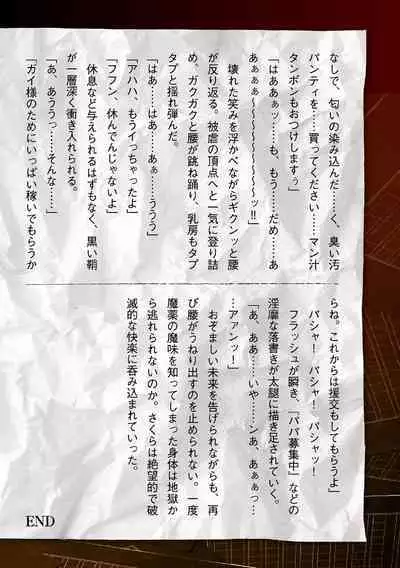 なしで、匂いの染み込んだ……く、臭い汚
パンティを……買ってください……マン汁
タンポンもおつけしますぅ」
「はああぁッ……も、もう……だめ……あ
あぁぁぁ～～～～～～～～～ッ!!」
壊れた笑みを浮かべながらギクンッと腰
が反り返る。被虐の頂点へと一気に登り詰
め、ガクガクと腰が跳ね踊り、乳房もタプ
タプと揺れ弾んだ。
「はぁ……はぁ……あぁ……ううう」
「アハハ、もうイっちゃったよ」
「フフン、休んでんじゃないよ」
休息など与えられるはずもなく、黒い鞘
が一層深く衝き入れられる。
「あ、あううっ……そんな……」
「ガイ様のためにいっぱい稼いでもらうか
らね。これからは援交もしてもらうよ」
パシャ！　パシャ！　パシャッ！
フラッシュが瞬き、「パパ募集中」などの
淫靡な落書きが太腿に描き足されていく。
「あ、ああ……いや……ンあ、あぁぁっ…
…アァンッ！」
おぞましい未来を告げられながらも、再
び腰がうねり出すのを止められない。一度
魔薬の魔味を知ってしまった身体は地獄か
ら逃れられないのか。さくらは絶望的で破
滅的な快楽に呑み込まれていった。
END